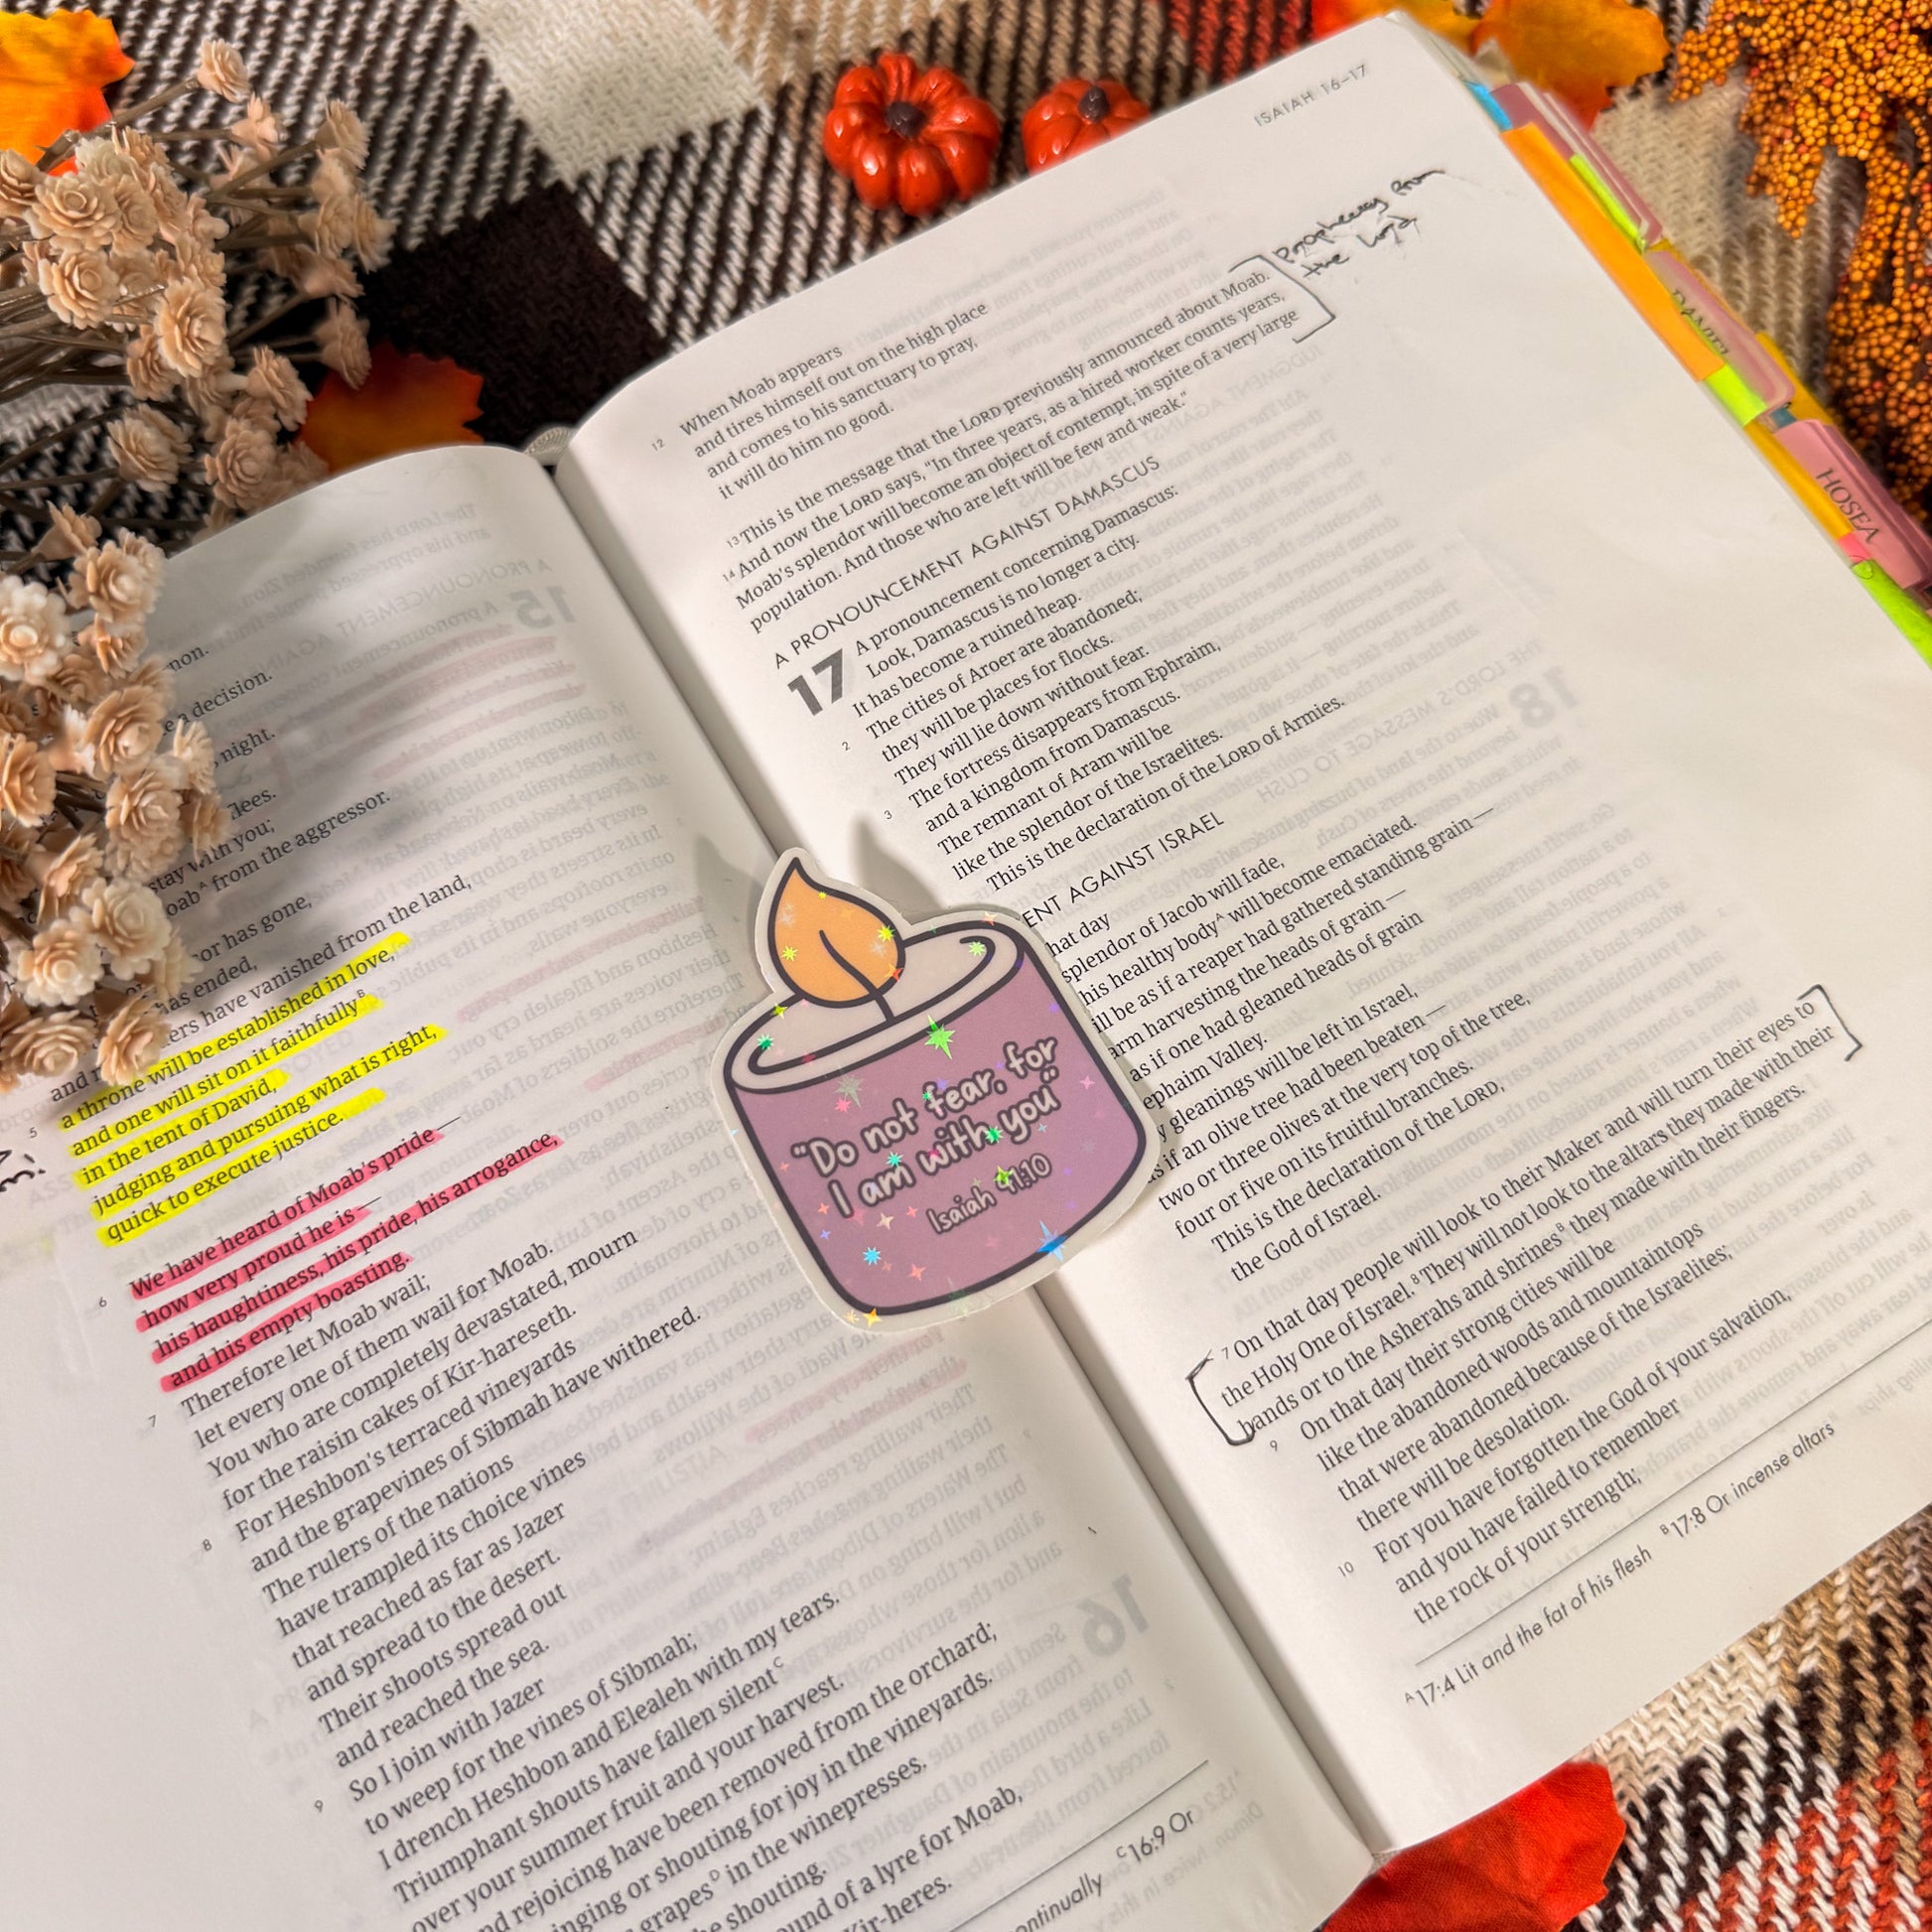 non.
a decision.
night.
flees.
stay with you;
from the aggressor.
has gone,
has ended,
have vanished from the land,
a throne will be established in love,
and one will sit on it faithfully ᴮ
in the tent of David,
judging and pursuing what is right,
quick to execute justice.
6 We have heard of Moab's pride —
how very proud he is —
his haughtiness, his pride, his arrogance,
and his empty boasting.
7 Therefore let Moab wail;
let every one of them wail for Moab.
You who are completely devastated, mourn
for the raisin cakes of Kir-hareseth.
8 For Heshbon's terraced vineyards
and the grapevines of Sibmah have withered.
The rulers of the nations
have trampled its choice vines
that reached as far as Jazer
and spread to the desert.
Their shoots spread out
and reached the sea.
9 So I join with Jazer
to weep for the vines of Sibmah;
I drench Heshbon and Elealeh with my tears.
Triumphant shouts have fallen silent ᶜ
over your summer fruit and your harvest.
rejoicing have been removed from the orchard;
or shouting for joy in the vineyards.
grapes ᴰ in the winepresses.
shouting.
of a lyre for Moab,
Kir-heres.
ᶜ 16:9 Or
ISAIAH 16–17
12 When Moab appears
and tires himself out on the high place
and comes to his sanctuary to pray,
it will do him no good.
13 This is the message that the LORD previously announced about Moab.
14 And now the LORD says, "In three years, as a hired worker counts years,
Moab's splendor will become an object of contempt, in spite of a very large
population. And those who are left will be few and weak."
from
the Lord
A PRONOUNCEMENT AGAINST DAMASCUS
17 A pronouncement concerning Damascus:
Look, Damascus is no longer a city.
It has become a ruined heap.
2 The cities of Aroer are abandoned;
they will be places for flocks.
They will lie down without fear.
3 The fortress disappears from Ephraim,
and a kingdom from Damascus.
The remnant of Aram will be
like the splendor of the Israelites.
This is the declaration of the LORD of Armies.
AGAINST ISRAEL
day
splendor of Jacob will fade,
his healthy body ᴬ will become emaciated.
be as if a reaper had gathered standing grain —
arm harvesting the heads of grain —
as if one had gleaned heads of grain
Valley.
gleanings will be left in Israel,
if an olive tree had been beaten —
two or three olives at the very top of the tree,
four or five on its fruitful branches.
This is the declaration of the LORD,
the God of Israel.
7 On that day people will look to their Maker and will turn their eyes to
the Holy One of Israel. 8 They will not look to the altars they made with their
hands or to the Asherahs and shrines ᴮ they made with their fingers.
9 On that day their strong cities will be
like the abandoned woods and mountaintops
that were abandoned because of the Israelites;
there will be desolation.
10 For you have forgotten the God of your salvation,
and you have failed to remember
the rock of your strength;
ᴬ 17:4 Lit and the fat of his flesh ᴮ 17:8 Or incense altars
"Do not fear, for
I am with you"
Isaiah 41:10
DANIEL
HOSEA